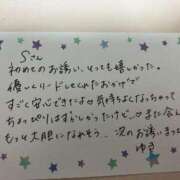 Sさん
初めてのお誘い、とっても嬉しかった。
優しくリードしてくれたおかげで
すごく安心できたよ♡気持ちよくなっちゃって
ちょっぴり はずかしかったけど…♡ また会え
もっと大胆になれそう。次のお誘いまってま
ゆき